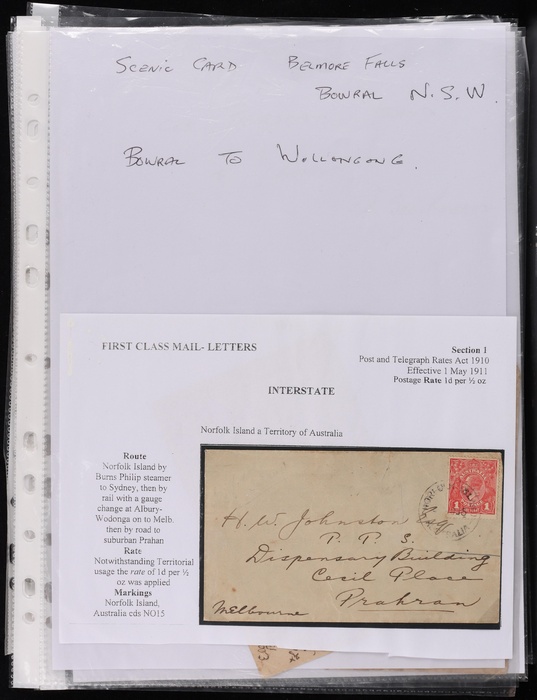 SCENIC CARD BELMORE FALLS
BOWRAL N.S.W.
BOWRAL TO WOLLONGONG.
FIRST CLASS MAIL- LETTERS
Section 1
Post and Telegraph Rates Act 1910
Effective 1 May 1911
Postage Rate 1d per ½ oz
INTERSTATE
Norfolk Island a Territory of Australia
Route
Norfolk Island by
Burns Philip steamer
to Sydney, then by
rail with a gauge
change at Albury-
Wodonga on to Melb.
then by road to
suburban Prahan
Rate
Notwithstanding Territorial
usage the rate of 1d per ½
oz was applied
Markings
Norfolk Island,
Australia cds NO15.
H. W. Johnston Esq
P. P. S.
Dispensary Building
Cecil Place
Prahran
Melbourne